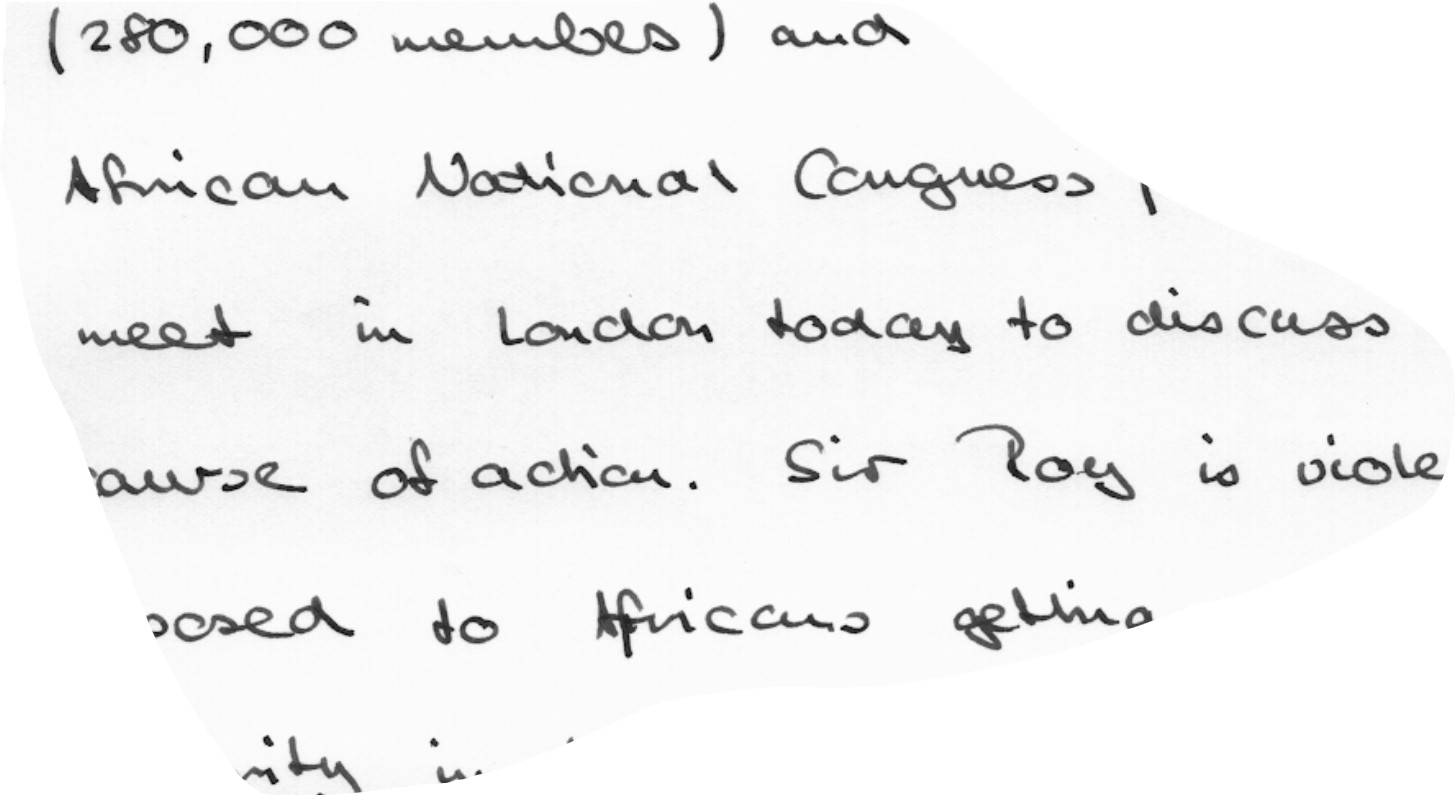 (280,000 members) and
African National Congress,
meet in London today to discuss
course of action. Sir Roy is
to Africans getting
in